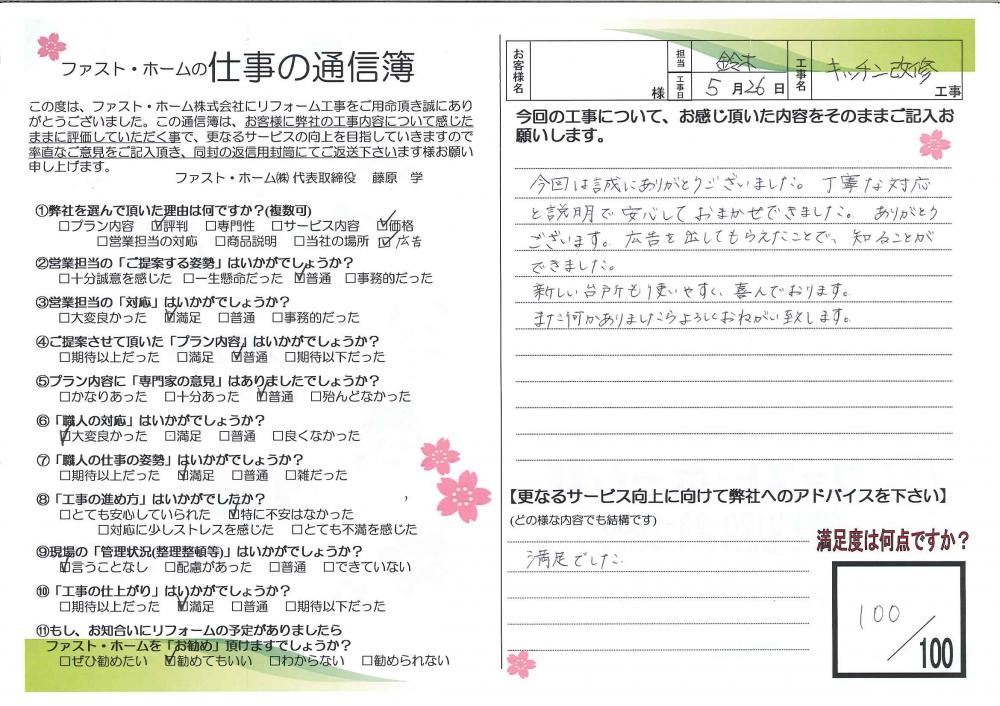 ファスト・ホームの仕事の通信簿
この度は、ファスト・ホーム株式会社にリフォーム工事をご用命頂き誠にあり
がとうございました。この通信簿は、お客様に弊社の工事内容について感じた
ままに評価していただく事で、更なるサービスの向上を目指していきますので
率直なご意見をご記入頂き、同封の返信用封筒にてご返送下さいます様お願い
申し上げます。
ファスト・ホーム㈱ 代表取締役 藤原 学
①弊社を選んで頂いた理由は何ですか?(複数可)
□プラン内容 ☑評判 □専門性 □サービス内容 ☑価格
□営業担当の対応 □商品説明 □当社の場所 ☑広告
②営業担当の「ご提案する姿勢」はいかがでしょうか?
□十分誠意を感じた □一生懸命だった ☑普通 □事務的だった
③営業担当の「対応」はいかがでしょうか?
□大変良かった ☑満足 □普通 □事務的だった
④ご提案させて頂いた「プラン内容」はいかがでしょうか?
□期待以上だった □満足 ☑普通 □期待以下だった
⑤プラン内容に「専門家の意見」はありましたでしょうか?
□かなりあった □十分あった ☑普通 □殆んどなかった
⑥「職人の対応」はいかがでしょうか?
☑大変良かった □満足 □普通 □良くなかった
⑦「職人の仕事の姿勢」はいかがでしょうか?
□期待以上だった ☑満足 □普通 □雑だった
⑧「工事の進め方」はいかがでしたか?
□とても安心していられた ☑特に不安はなかった
□対応に少しストレスを感じた □とても不満を感じた
⑨現場の「管理状況(整理整頓等)」はいかがでしょうか?
☑言うことなし □配慮があった □普通 □できていない
⑩「工事の仕上がり」はいかがでしょうか?
□期待以上だった ☑満足 □普通 □期待以下だった
⑪もし、お知合いにリフォームの予定がありましたら
ファスト・ホームを「お勧め」頂けますでしょうか?
□ぜひ勧めたい ☑勧めてもいい □わからない □勧められない
お客様名 様 担当 鈴木 工事日 5月26日 工事名 キッチン改修 工事
今回の工事について、お感じ頂いた内容をそのままご記入お
願いします。
今回は誠にありがとうございました。丁寧な対応
と説明で安心しておまかせできました。ありがとう
ございます。広告を出してもらえたことで、知ることが
できました。
新しい台所も使いやすく、喜んでおります。
また何かありましたらよろしくおねがい致します。
【更なるサービス向上に向けて弊社へのアドバイスを下さい】
(どの様な内容でも結構です)
満足でした
満足度は何点ですか?
100/100